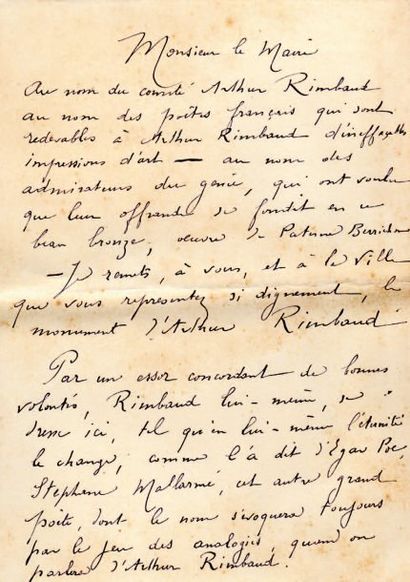 Monsieur le Maire
Au nom du comité Arthur Rimbaud
au nom des poëtes français qui sont
redevables à Arthur Rimbaud d'ineffaçables
impressions d'art — au nom des
admirateurs du génie, qui ont voulu
que leur offrande se fondit en ce
beau bronze, oeuvre de Paterne Berrichon
— Je remets, à vous, et à la Ville
que vous representez si dignement, le
monument d'Arthur Rimbaud
Par un essor concordant de bonnes
volontés, Rimbaud lui-même, se
dresse ici, tel qu'en lui-même l'éternité
le change, comme l'a dit d'Egar Poe
Stephane Mallarmé, cet autre grand
poëte, dont le nom s'évoquera toujours
par le jeu des analogies, quand on
parlera d'Arthur Rimbaud.